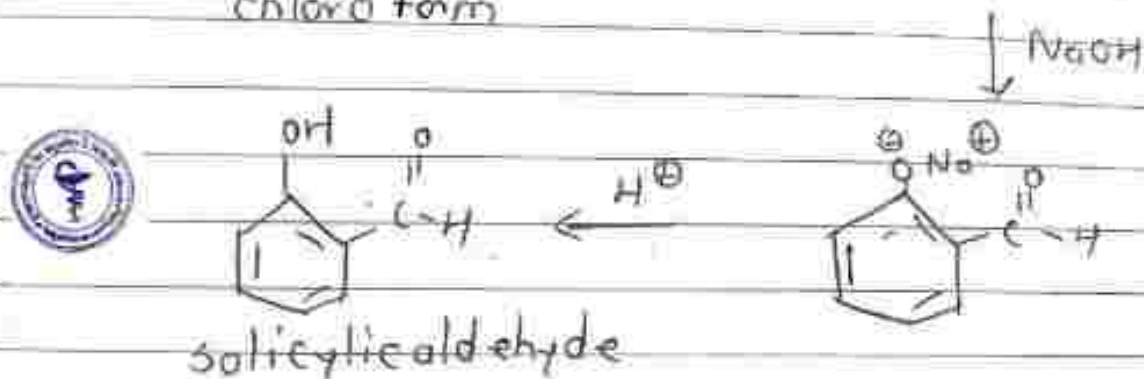 chloroform
NaOH
OH O
C-H
H⊕
⊖ O Na⊕ O
C-H
salicylicaldehyde